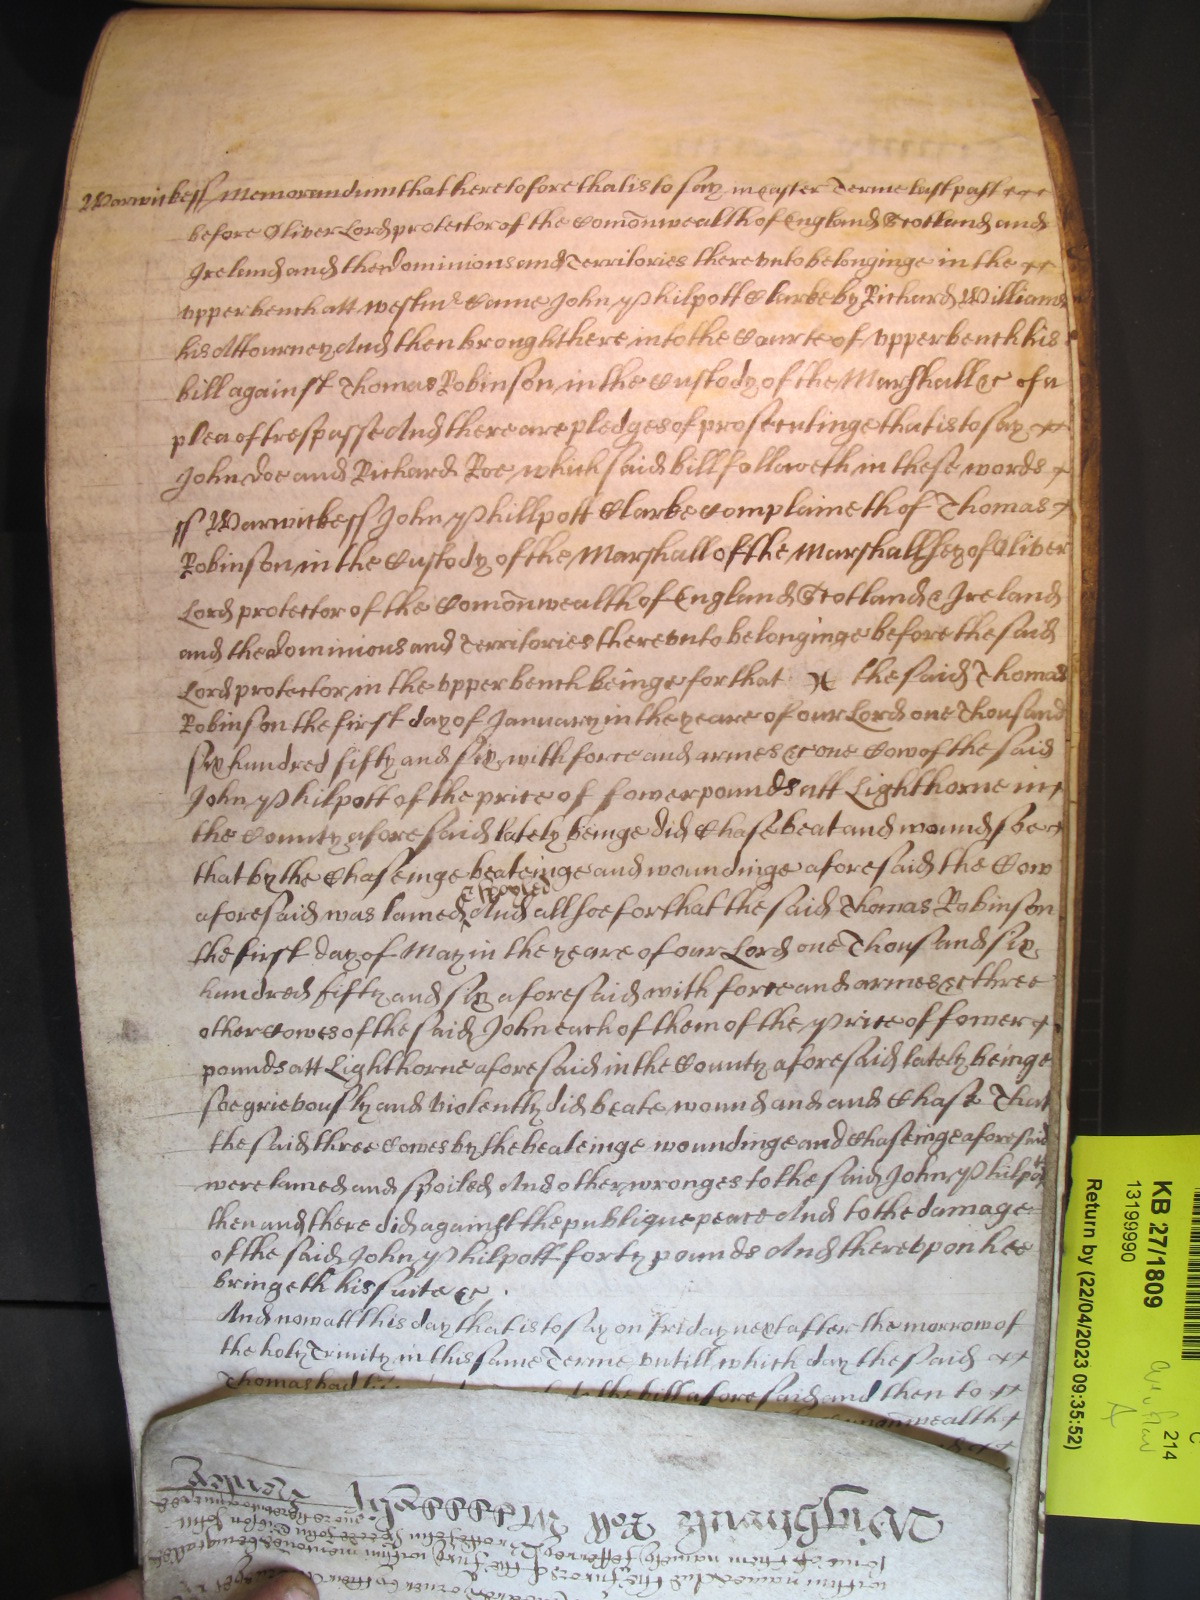 Warwickess Memorandum that heretofore that is to say in Easter Terme last past
before Oliver Lord protector of the Comōnwealth of England Scotland and
Ireland and the dominions and Territories therevnto belonginge in the
vpper bench att westmr Came John Philpott Clarke by Richard Williams
his Attourney And then brought here into the Courte of vpper bench his
bill against Thomas Robinson in the Custody of the Marshall &c of a
plea of trespasse And there are pledges of prosecutinge that is to say
John doe and Richard Roe which said bill followeth in these words
ss Warwickess John Phillpott Clarke Complaineth of Thomas
Robinson in the Custody of the Marshall of the Marshallsey of Oliver
Lord protector of the Comōnwealth of England Scotland & Ireland
and the dominions and Territories therevnto belonginge before the said
Lord protector in the vpper bench beinge for that the said Thomas
Robinson the first day of January in the yeare of our Lord one Thousand
six hundred fifty and six with force and armes &c one Cow of the said
John Philpott of the price of fower pounds att Lighthorne in
the County aforesaid lately beinge did Chase beat and wound soe
that by the Chaseinge beateinge and woundinge aforesaid the Cow
aforesaid was lamed & spoyled And allsoe for that the said Thomas Robinson
the first day of May in the yeare of our Lord one Thousand six
hundred fifty and six aforesaid with force and armes &c three
other Cowes of the said John each of them of the Price of fower
pounds att Lighthorne aforesaid in the County aforesaid lately beinge
soe grievously and violently did beate wound and and Chase That
the said three Cowes by the beateinge woundinge and Chaseinge aforesaid
were lamed and spoiled And other wronges to the said John Philpott
then and there did against the publique peace And to the damage
of the said John Philpott forty pounds And therevpon hee
bringeth his suite &c
And now att this day that is to say on friday next after the morrow of
the holy Trinity in this same Terme vntill which day the said
Thomas had the bill aforesaid and then to
Comōnwealth
KB 27/1809
13199990
Return by (22/04/2023 09:35:52)
C
214
A